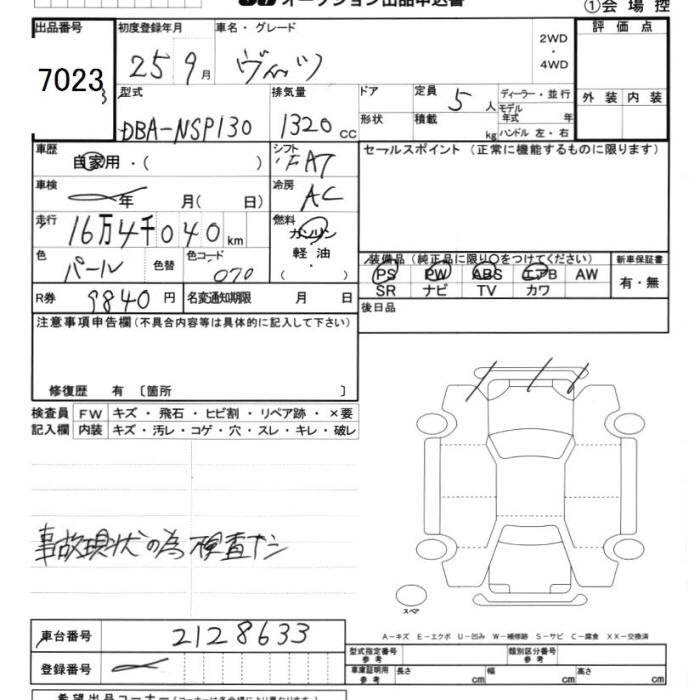 オークション出品申込書
①会場控
出品番号 初度登録年月 車名・グレード 評価点
7023 25 9月 ヴィッツ 2WD・4WD
外装 内装
型式 排気量 ドア 定員 5人 ディーラー・並行
モデル年式 年
DBA-NSP130 1320 cc 形状 積載 kg ハンドル 左・右
車歴 自家用・( ) シフト FAT セールスポイント(正常に機能するものに限ります)
車検 年 月(日) 冷房 AC
走行 16万4千040km 燃料 ガソリン
軽油
( ・ )
色 パール 色替 色コード 070
装備品(純正品に限り○をつけてください) 新車保証書
PS PW ABS エアB AW 有・無
SR ナビ TV カワ
R券 9840円 名変通知期限 月 日 後日品
注意事項申告欄(不具合内容等は具体的に記入して下さい)
修復歴 有 〔箇所 〕
検査員 FW キズ・飛石・ヒビ割・リペア跡・×要
記入欄 内装 キズ・汚レ・コゲ・穴・スレ・キレ・破レ
事故現状の為 検査ナシ
スペア
A-キズ E-エクボ U-凹み W-補修跡 S-サビ C-腐食 XX-交換済
車台番号 2128633
型式指定番号 参考 類別区分番号 参考
登録番号
車庫証明用 参考 長さ cm 幅 cm 高さ cm
希望出品コーナー